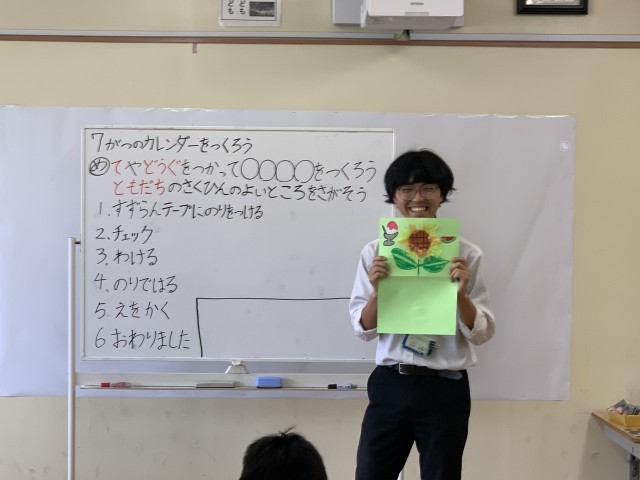 7がつのカレンダーをつくろう
め てやどうぐをつかって〇〇〇〇をつくろう
ともだちのさくひんのよいところをさがそう
1.すずらんテープにのりをつける
2.チェック
3.わける
4.のりではる
5.えをかく
6 おわりました
EPSON